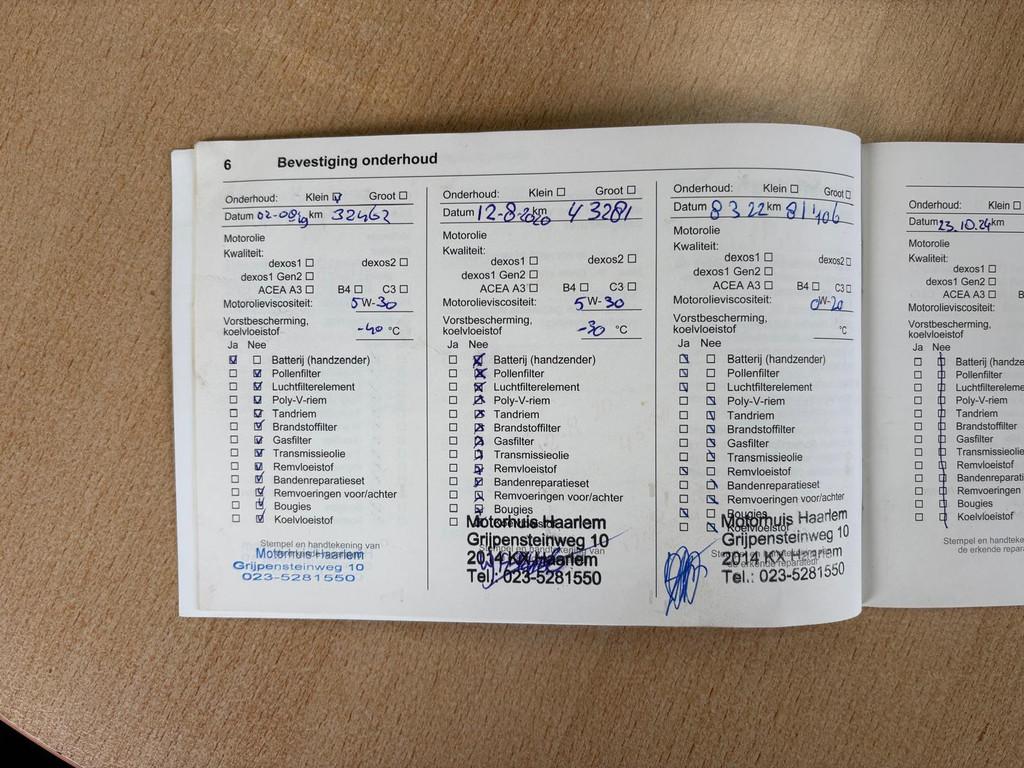 6 Bevestiging onderhoud
Onderhoud: Klein Groot
Datum 02-08-19 km 32462
Motorolie
Kwaliteit:
dexos1 dexos2
dexos1 Gen2
ACEA A3 B4 C3
Motorolieviscositeit: 5W-30
Vorstbescherming,
koelvloeistof -40 °C
Ja Nee
Batterij (handzender)
Pollenfilter
Luchtfilterelement
Poly-V-riem
Tandriem
Brandstoffilter
Gasfilter
Transmissieolie
Remvloeistof
Bandenreparatieset
Remvoeringen voor/achter
Bougies
Koelvloeistof
Stempel en handtekening van
Motorhuis Haarlem
Grijpensteinweg 10
023-5281550
Onderhoud: Klein Groot
Datum 12-8-2020 km 43281
Motorolie
Kwaliteit:
dexos1 dexos2
dexos1 Gen2
ACEA A3 B4 C3
Motorolieviscositeit: 5W-30
Vorstbescherming,
koelvloeistof -30 °C
Ja Nee
Batterij (handzender)
Pollenfilter
Luchtfilterelement
Poly-V-riem
Tandriem
Brandstoffilter
Gasfilter
Transmissieolie
Remvloeistof
Bandenreparatieset
Remvoeringen voor/achter
Bougies
Motorhuis Haarlem
Grijpensteinweg 10
2014 KX Haarlem
Tel.: 023-5281550
Onderhoud: Klein Groot
Datum 8 3 22 km 81406
Motorolie
Kwaliteit:
dexos1 dexos2
dexos1 Gen2
ACEA A3 B4 C3
Motorolieviscositeit: 0W-20
Vorstbescherming,
koelvloeistof °C
Ja Nee
Batterij (handzender)
Pollenfilter
Luchtfilterelement
Poly-V-riem
Tandriem
Brandstoffilter
Gasfilter
Transmissieolie
Remvloeistof
Bandenreparatieset
Remvoeringen voor/achter
Bougies
Koelvloeistof
Motorhuis Haarlem
Grijpensteinweg 10
2014 KX Haarlem
de erkende reparateur
Tel.: 023-5281550
Onderhoud: Klein
Datum 23.10.24 km
Motorolie
Kwaliteit:
dexos1
dexos1 Gen2
ACEA A3
Motorolieviscositeit:
Vorstbescherming,
koelvloeistof
Ja Nee
Batterij (handze
Pollenfilter
Luchtfiltereleme
Poly-V-riem
Tandriem
Brandstoffilter
Gasfilter
Transmissieolie
Remvloeistof
Bandenreparati
Remvoeringen
Bougies
Koelvloeistof
Stempel en handt
de erkende repara